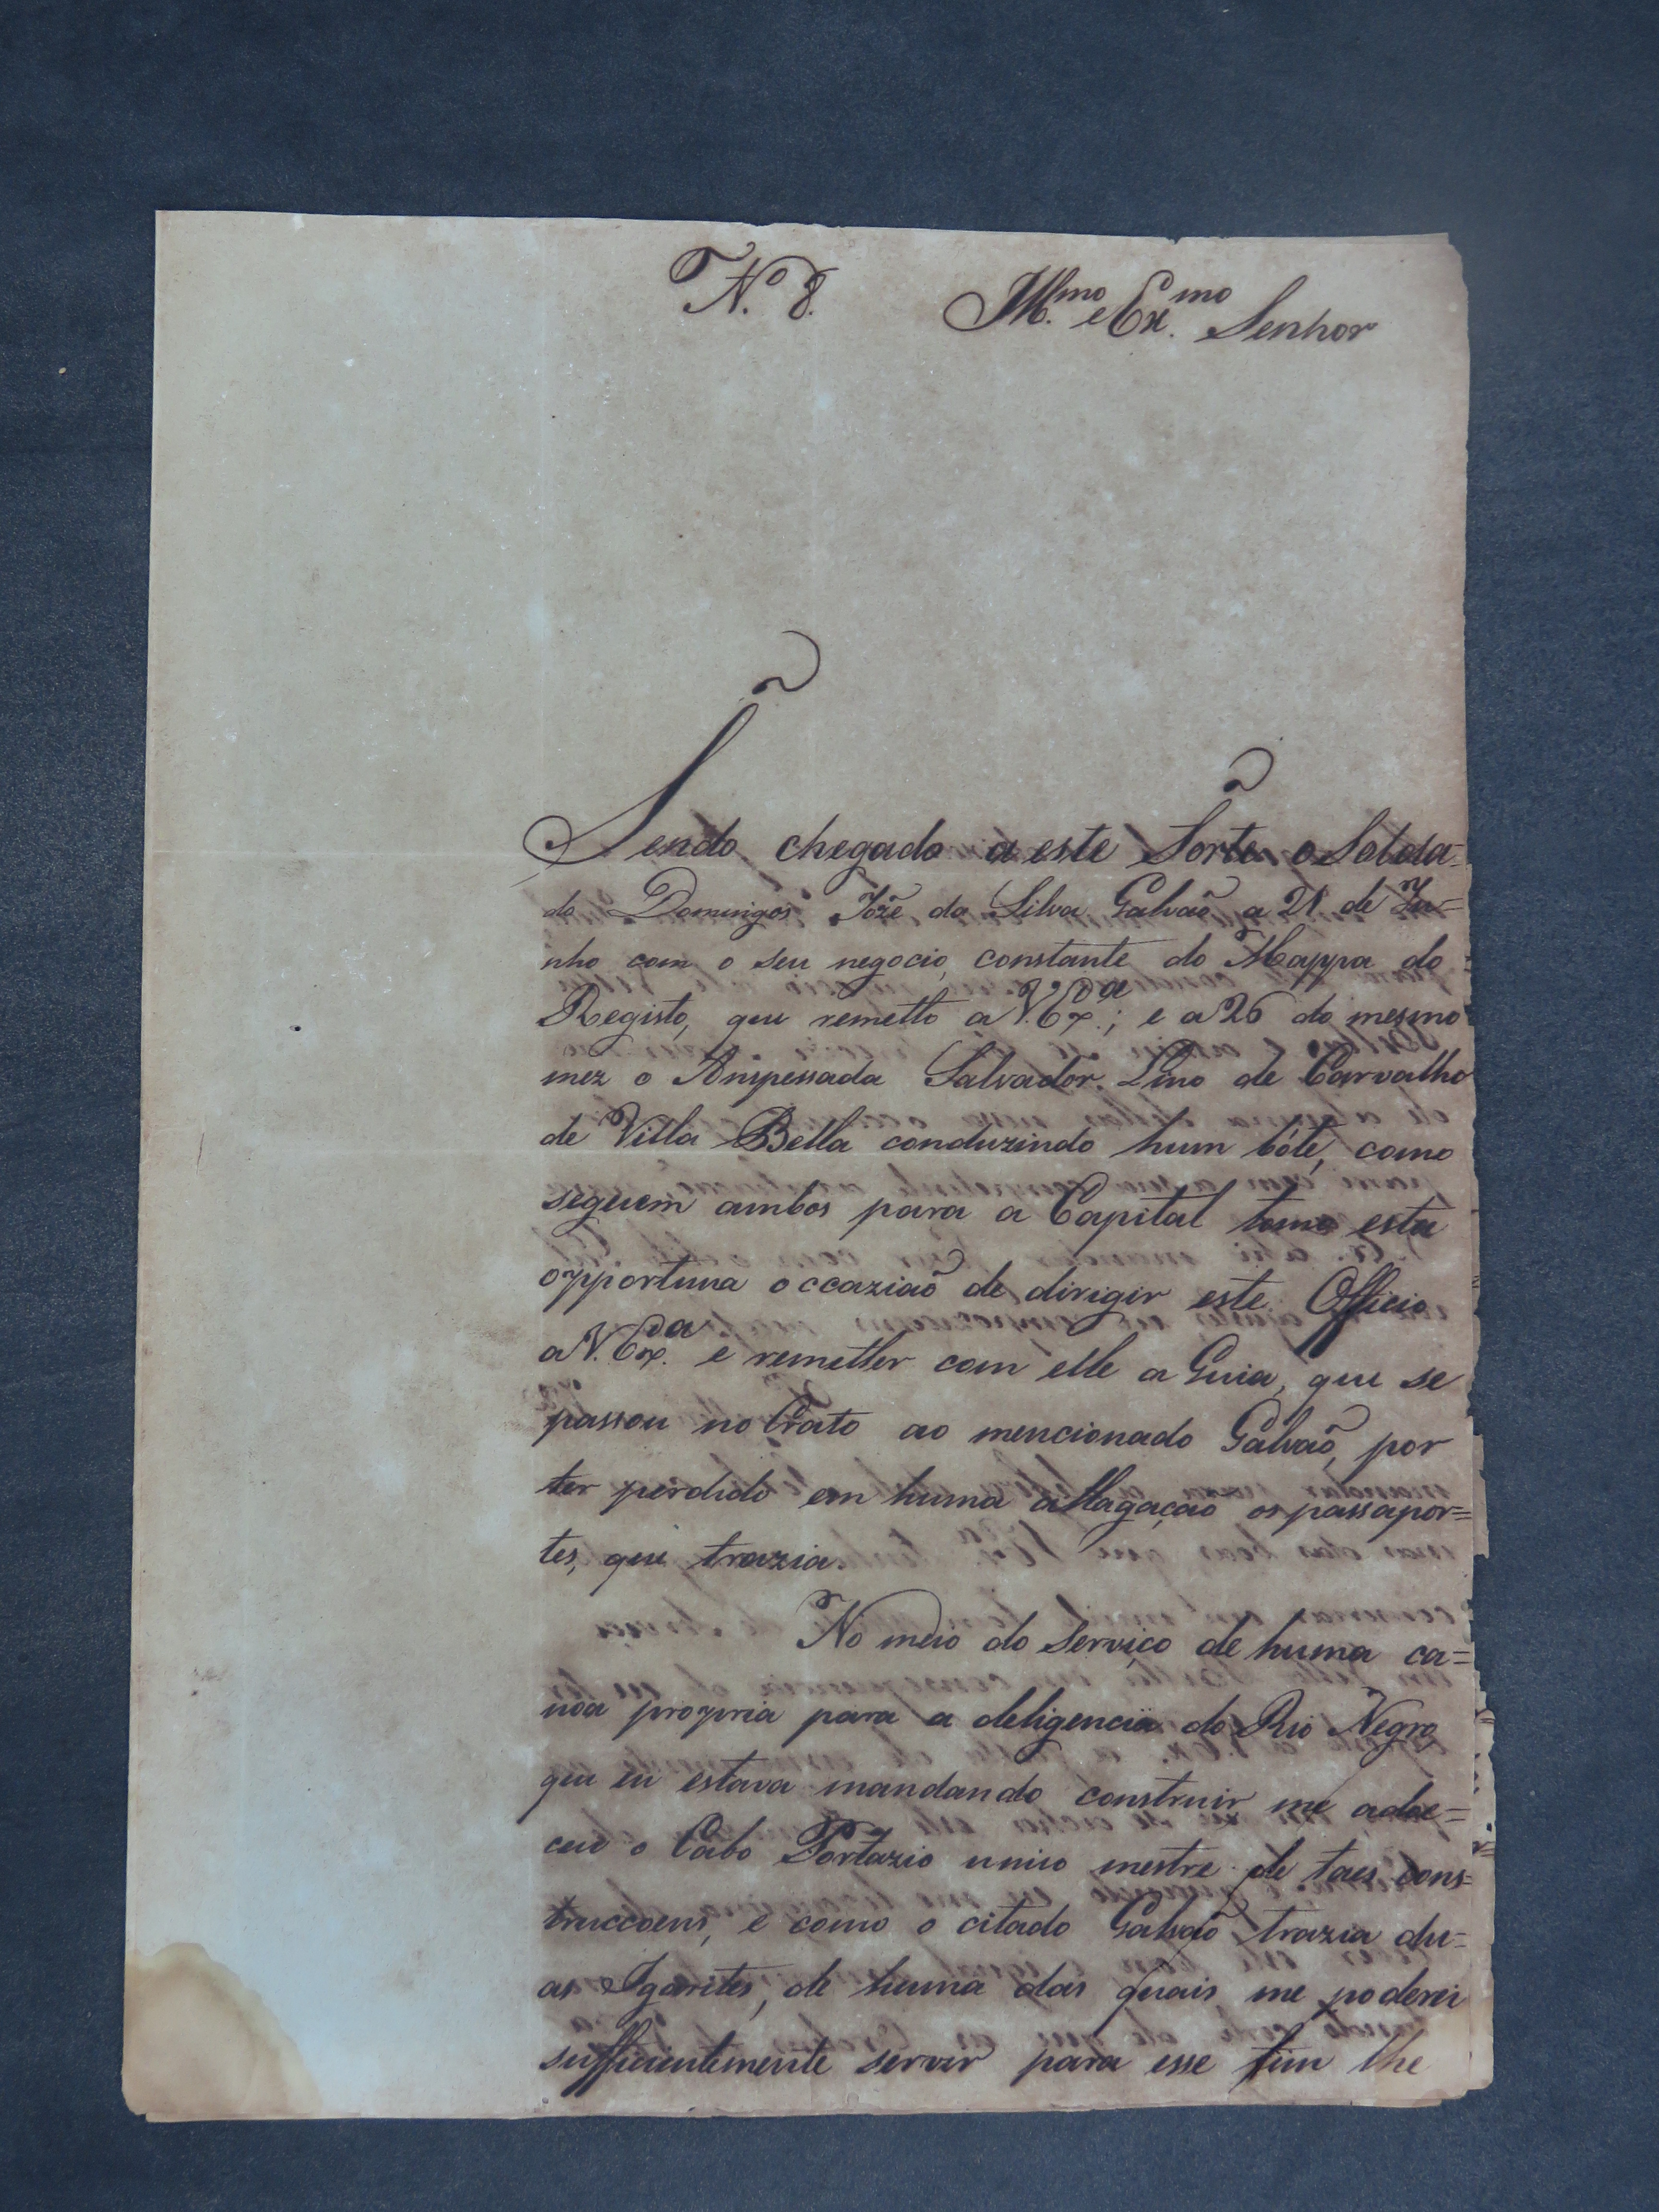 N.º 8.
Ill.mo e Ex.mo Senhor
Sendo chegado a este Forte o Solda=
do Domingos Joze da Silva Galvaõ a 21 de Ju=
nho com o seu negocio, constante do Mappa do
Registo, que remetto a V. Ex.ª; e a 26 do mesmo
mez o Anspessada Salvador Lino de Carvalho
de Villa Bella conduzindo hum bóte, como
seguem ambos para a Capital tomo esta
opportuna occaziaõ de dirigir este Officio
a V. Ex.ª e remetter com elle a Guia, que se
passou no Crato ao mencionado Galvaõ, por
ter perdido em huma allagaçaõ os passapor=
tes, que trazia.
No meio do Serviço de huma ca=
noa propria para a deligencia do Rio Negro,
que eu estava mandando construir me adoe=
ceu o Cabo Portazio unico mestre de taes cons=
truccoens, e como o citado Galvaõ trazia du=
as Igarités, de huma das quais me poderei
sufficientemente servir para esse fim lhe